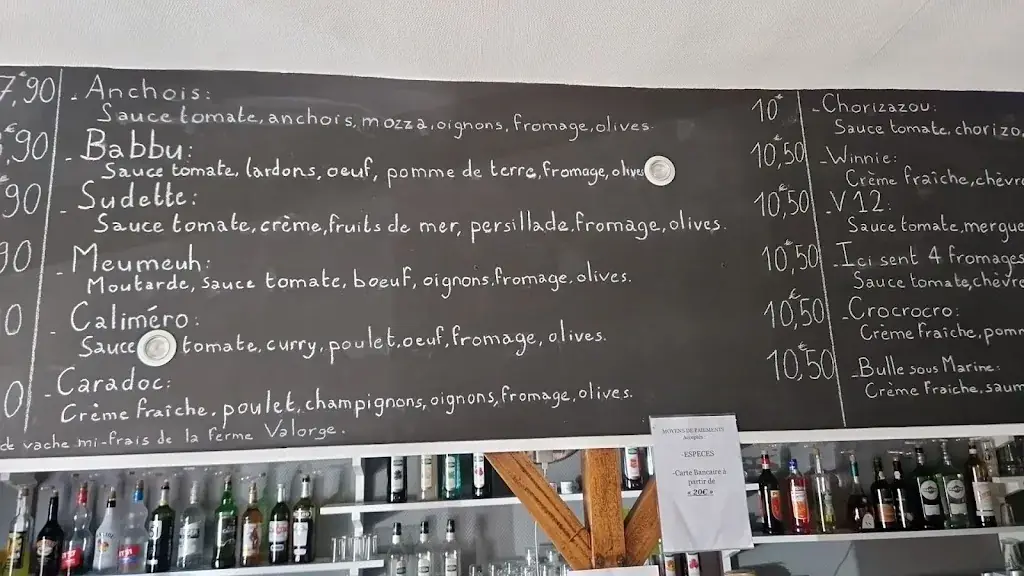 7,€90
- Anchois:
Sauce tomate, anchois, mozza, oignons, fromage, olives.
10€
€,90
- Babbu:
Sauce tomate, lardons, oeuf, pomme de terre, fromage, olives
10,€50
€90
- Sudette:
Sauce tomate, crème, fruits de mer, persillade, fromage, olives.
10,€50
90
- Meumeuh:
Moutarde, sauce tomate, boeuf, oignons, fromage, olives.
10,€50
0
- Caliméro:
Sauce tomate, curry, poulet, oeuf, fromage, olives.
10,€50
0
- Caradoc:
Crème fraîche, poulet, champignons, oignons, fromage, olives.
10,50
de vache mi-frais de la ferme Valorge.
- Chorizazou:
Sauce tomate, chorizo,
- Winnie:
Crème fraîche, chèvre
- V12:
Sauce tomate, mergue
- Ici sent 4 fromages
Sauce tomate, chèvre
- Crocrocro:
Crème fraîche, pomm
- Bulle sous Marine:
Crème fraîche, saum
MOYENS DE PAIEMENTS
acceptés
-ESPECES
-Carte Bancaire à
partir de
« 20€ »